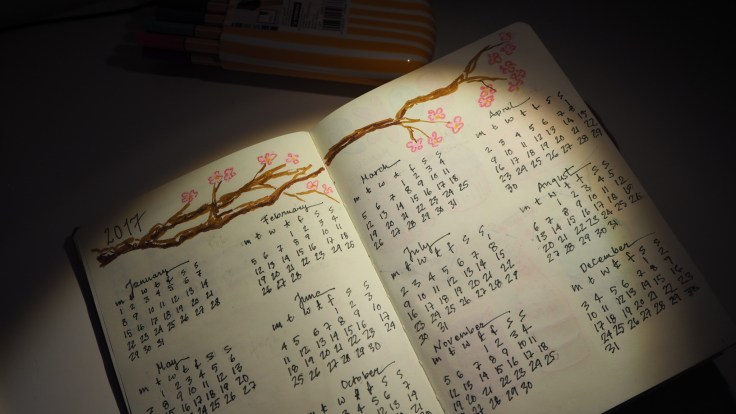 2017
January
m t w t f s s
1 2 3 4 5 6 7
8 9 10 11 12 13 14
15 16 17 18 19 20 21
22 23 24 25 26 27 28
29 30 31
February
m t w t f s s
1 2 3 4
5 6 7 8 9 10 11
12 13 14 15 16 17 18
19 20 21 22 23 24 25
26 27 28
May
m t w t f s s
1 2 3 4 5 6
June
m t w t f s s
1 2 3
4 5 6 7 8 9 10
11 12 13 14 15 16 17
18 19 20 21 22 23 24
25 26 27 28 29 30
October
m t w t f s s
March
m t w t f s s
1 2 3 4
5 6 7 8 9 10 11
12 13 14 15 16 17 18
19 20 21 22 23 24 25
26 27 28 29 30 31
April
m t w t f s s
1
2 3 4 5 6 7 8
9 10 11 12 13 14 15
16 17 18 19 20 21 22
23 24 25 26 27 28 29
30
July
m t w t f s s
1
2 3 4 5 6 7 8
9 10 11 12 13 14 15
16 17 18 19 20 21 22
23 24 25 26 27 28 29
30 31
August
m t w t f s s
November
m t w t f s s
1 2 3 4
5 6 7 8 9 10 11
12 13 14 15 16 17 18
19 20 21 22 23 24 25
26 27 28 29 30
December
m t w t f s s
1 2
3 4 5 6 7 8 9
10 11 12 13 14 15 16
17 18 19 20 21 22 23
24 25 26 27 28 29 30
31